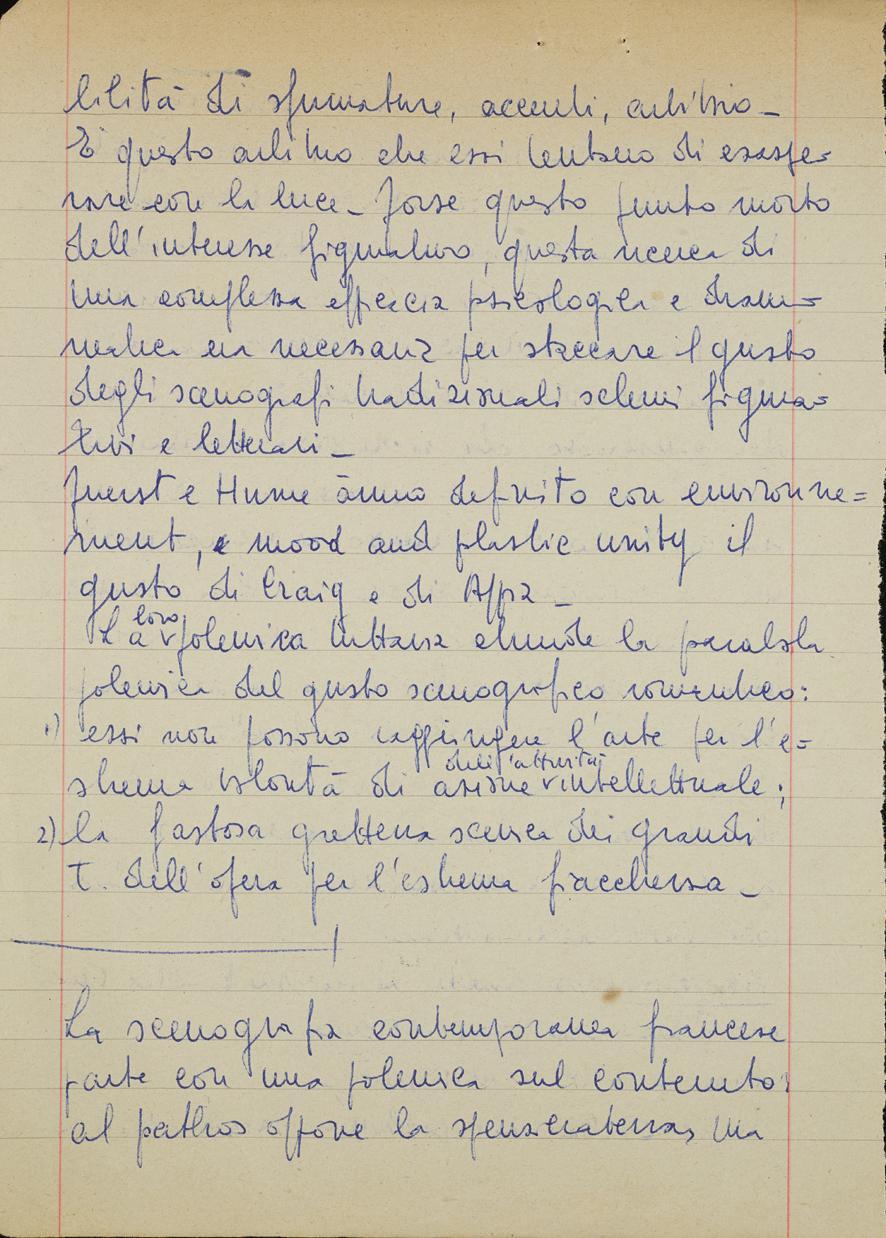 bilità di sfumature, accenti, arbitrio _
È questo arbitrio che essi tentano di esaspe=
rare con la luce _ Forse questo punto morto
dell'interesse figurativo, questa ricerca di
una complessa efficacia psicologica e dram=
matica era necessaria per staccare il gusto
degli scenografi tradizionali schemi figura=
tivi e letterari _
Fuerst e Hume ànno definito con environne=
ment, e mood and plastic unity il
gusto di Craig e di Appia _
La loro polemica tuttavia chiude la parabola
polemica del gusto scenografico romantico:
1) essi non possono raggiungere l'arte per l'e=
strema volontà di azione dell'attività intellettuale;
2) la fastosa grettezza scenica dei grandi
T. dell'opera per l'estrema fiacchezza _
La scenografia contemporanea francese
parte con una polemica sul contenuto:
al pathos oppone la spensieratezza, ma